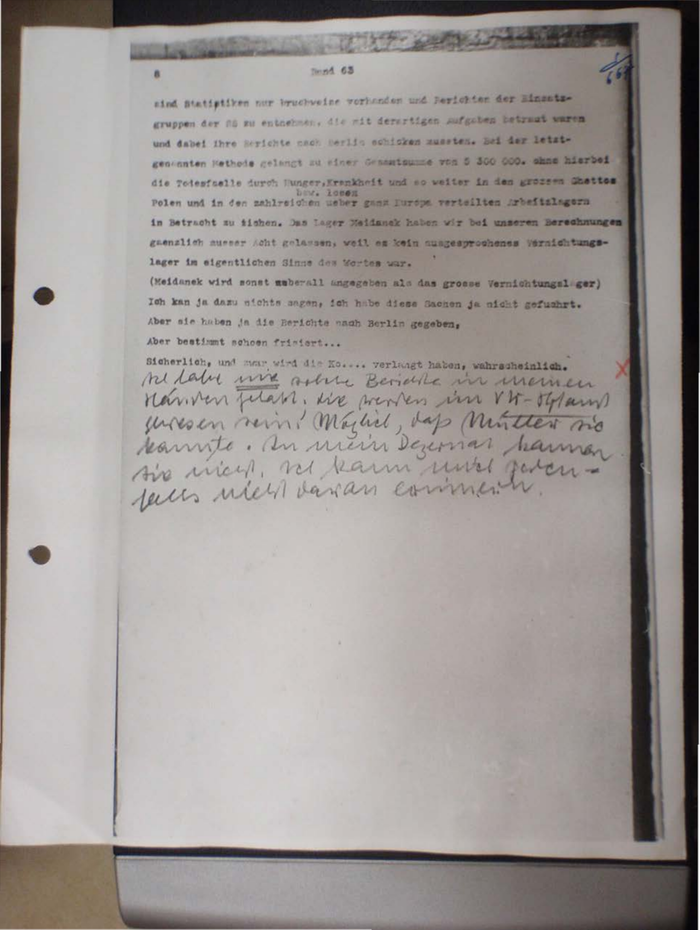 6 Band 63
sind Statistiken nur bruchweise vorhanden und Berichten der Einsatz-
gruppen der SS zu entnehmen, die mit derartigen Aufgaben betraut waren
und dabei ihre Berichte nach Berlin schicken mussten. Bei der letzt-
genannten Methode gelangt zu einer Gesamtsumme von 5 300 000. ohne hierbei
die Todesfaelle durch Hunger,Krankheit und so weiter in den grossen Ghettos
bzw. losen
Polen und in den zahlreichen ueber ganz Europa verteilten Arbeitslagern
in Betracht zu ziehen. Das Lager Meidanek haben wir bei unseren Berechnungen
gaenzlich ausser Acht gelassen, weil es kein ausgesprochenes Vernichtungs-
lager im eigentlichen Sinne des Wortes war.
(Meidanek wird sonst ueberall angegeben als das grosse Vernichtungslager)
Ich kan ja dazu nichts sagen, ich habe diese Sachen ja nicht gefuehrt.
Aber sie haben ja die Berichte nach Berlin gegeben,
Aber bestimmt schoen frisiert...
Sicherlich, und zwar wird die Ko.... verlangt haben, wahrscheinlich.
Ich habe nie solche Berichte in meinen
Händen gehabt. Sie werden im
gewesen sein! Möglich, daß Müller sie
kannte. In mein Dezernat kamen
sie nicht. Ich kann mich jeden-
falls nicht daran erinnern.